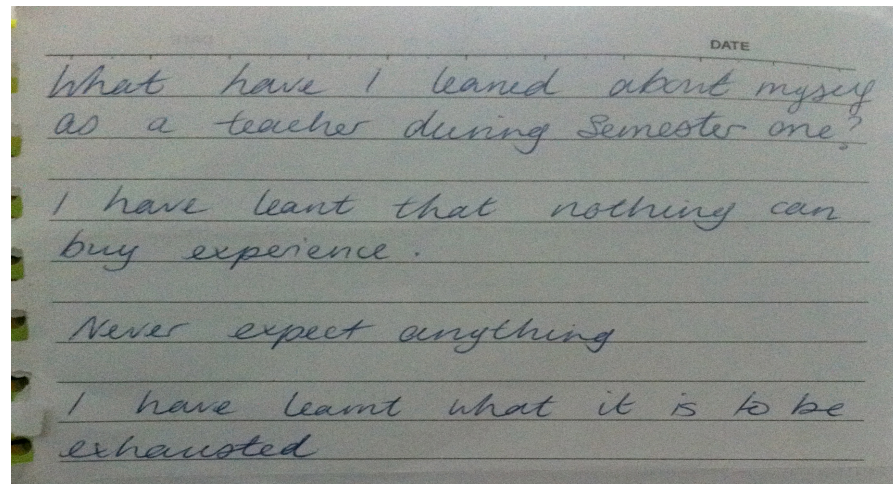 DATE
What have I leaned about myself
as a teacher during Semester one?
I have leant that nothing can
buy experience.
Never expect anything
I have learnt what it is to be
exhausted